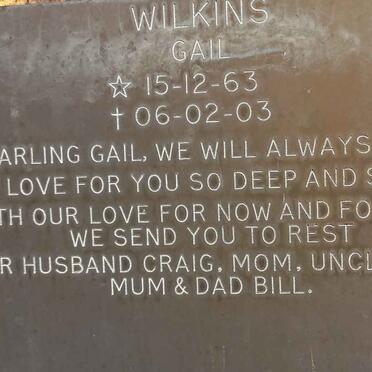 WILKINS
GAIL
☆ 15-12-63
† 06-02-03
ARLING GAIL, WE WILL ALWAYS
LOVE FOR YOU SO DEEP AND S
TH OUR LOVE FOR NOW AND FO
WE SEND YOU TO REST
R HUSBAND CRAIG, MOM, UNCL
MUM & DAD BILL.